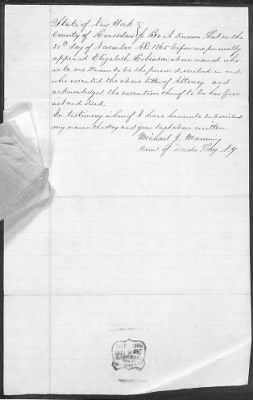 State of New York }
County of Rensselaer } Be it known that on the
30th day of November A.D. 1865 before me personally
appeared Elizabeth Robinson above named who
is to me known to be the person described in and
who executed the above letter of Attorney and
acknowledged the execution thereof to be her free
act and deed.
In testimony whereof I have hereunto subscribed
my name the day and year last above written
Michael J. Manning
Com. of Deeds Troy N.Y